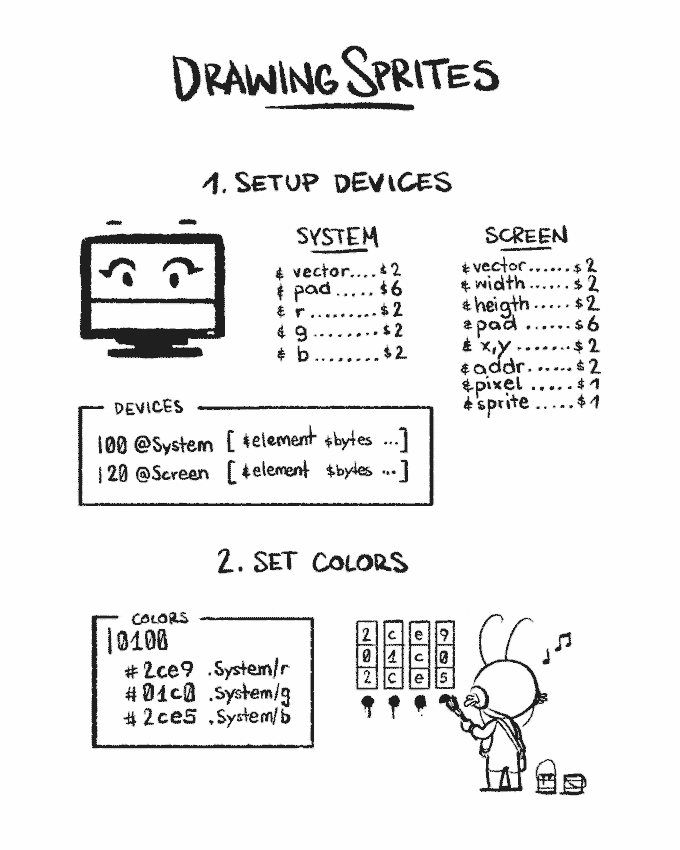 DRAWING SPRITES
1. SETUP DEVICES
SYSTEM
& vector....$2
& pad.....$6
& r.........$2
& g........$2
& b........$2
SCREEN
&vector......$2
&width......$2
&heigth.....$2
&pad......$6
& x,y.......$2
&addr......$2
&pixel.....$1
&sprite.....$1
DEVICES
|00 @System [ &element $bytes ...]
|20 @Screen [ &element $bytes ...]
2. SET COLORS
COLORS
|0100
#2ce9 .System/r
#01c0 .System/g
#2ce5 .System/b
2 c e 9
0 1 c 0
2 c e 5